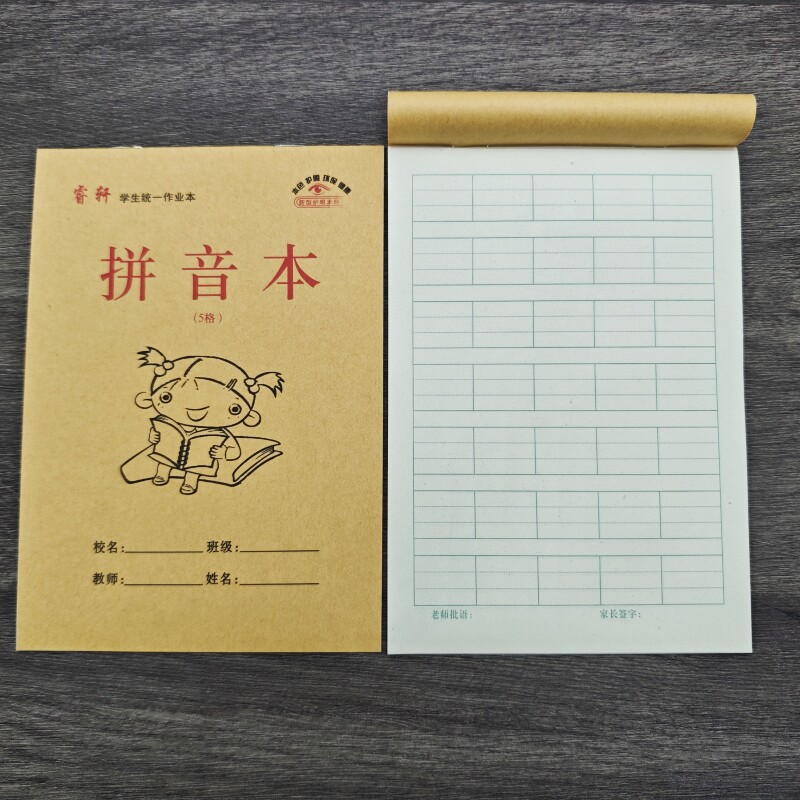 睿轩 学生统一作业本
本色 护眼 环保 健康
新型护眼本册
拼音本
(5格)
校名: 班级:
教师: 姓名:
老师批语: 家长签字: